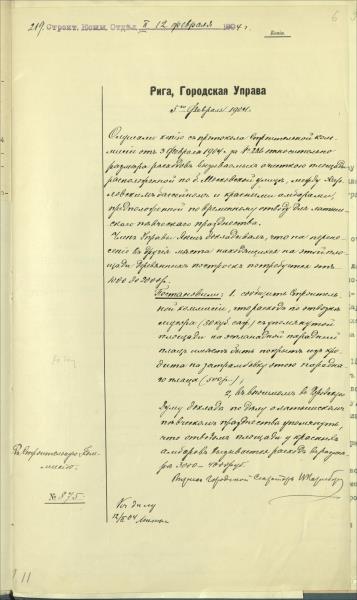 219. Строит. Комм. Отдѣл. II 12 февраля 1904 г.
6
Копія.
Рига, Городская Управа
5го Февраля 1904.
Слушали копію съ протокола Строительной ком-
миссіи отъ 3 Февраля 1904 г. за № 226 относительно
размѣра расходовъ вызываемыхъ очисткою площади
расположенной по б. Московской улицѣ, между Кар-
ловскимъ бассейномъ и красными амбарами,
предположенной къ временному отводу для латыш-
скаго пѣвческаго празднества.
Членъ Управы докладывалъ, что на перене-
сеніе въ другія мѣста находящихся на этой пло-
щади деревянныхъ построекъ потребуется отъ
1000 до 2000 р.
Постановили: 1, сообщить Строитель-
ной коммиссіи, что расходъ по отвозкѣ
мусора (30 куб. саж.) съ упомянутой
площади на эспланадный парадный
плацъ имѣетъ быть покрытъ изъ кре-
дита на затрамбовку этого параднаго
плаца (500 р.);
2, въ вносимомъ въ Городскую
Думу докладѣ по дѣлу о латышскомъ
пѣвческомъ празднествѣ упомянуть,
что отводъ площади у красныхъ
амбаровъ вызываетъ расходъ въ размѣ-
рѣ 3000-4000 руб.
Подписалъ Городской Секретарь
Въ Строительную Ком-
миссію.
№ 875.
Къ дѣлу
12/II 04
11